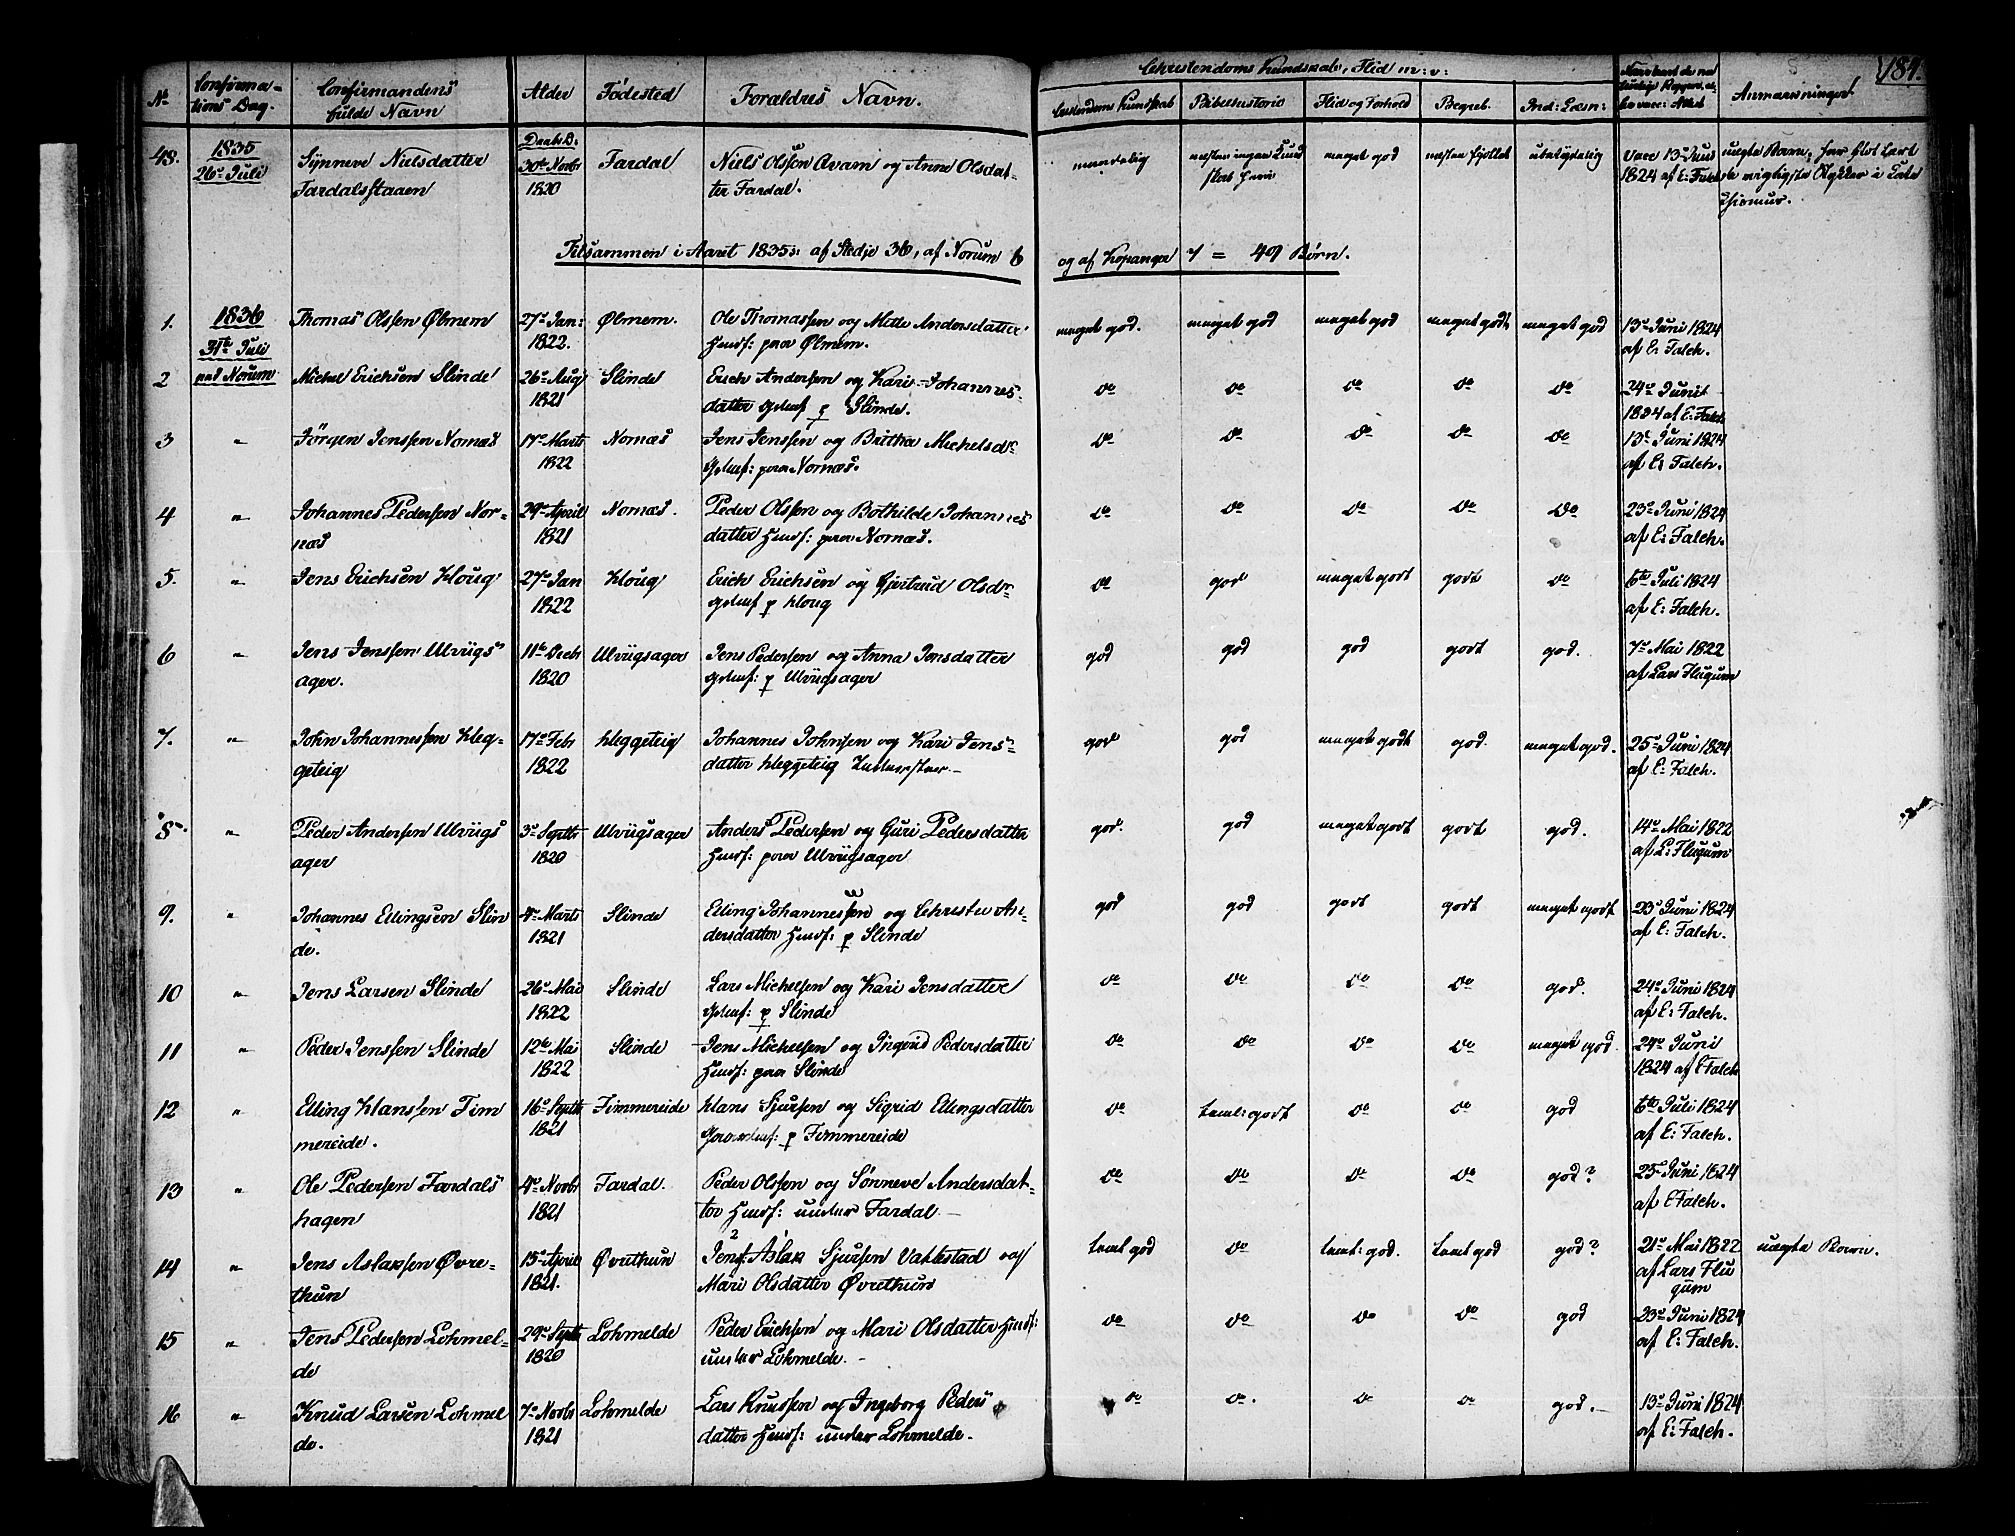 Christendoms Kundskab, Flid m: v:
184.
No
Confirma-
tions Dag.
Confirmandens
fulde Navn
Alder
Fødested
Forældres Navn.
Bibelhistorie
Flid og Forhold
Begreb.
Ind: Læsn:
Anmærkninger
48.
1835
26de Juli
Synneve Nielsdatter
Fardalsstaaen
Daabs D:
30te Novbr
1820
Fardal
Niels Olssen Qvam og Anna Olsdat-
ter Fardal.
maadelig
næsten ingen Kund
skab heri
meget god
utydelig
Vacc 13de Juni
1824 af E: Falch
uægte Barn, har blot lært
de vigtigste Stykker i Cate
chismus.
Tilsammen i Aaret 1835: af Stedje 36, af Norum 6
og af Kopanger 7 = 49 Børn.
1.
1836
31te Juli
paa Norum
Thomas Olssen Ølmem
27de Jan:
1822.
Ølmem.
Ole Thomassen og Mette Andersdatter
Huusf: paa Ølmem.
meget god.
meget god
meget god
meget godt
meget god
13de Juni 1824
af E: Falch.
2
Michel Erichsen Slinde
26de Aug
1821
Slinde
Erich Andersen og Kari Johannes-
datter Gdmf p Slinde.
do
do
do
do
do
24de Juni
1824 af E: Falch
3
"
Jørgen Jenssen Nornæs
17de Marts
1822
Nornæs
Jens Jenssen og Brithe Michelsdr
Gdmf: paa Nornæs.
do
do
do
do
do
13de Juni 1824
af E: Falch.
4
"
Johannes Pedersen Nor-
næs
29de April
1821
Nornæs.
Peder Olssen og Bothilde Johannes
datter Huusf: paa Nornæs.
do
do
do
do
do
23de Juni 1824
af E: Falch.
5.
"
Jens Erichsen Houg
27de Jan
1822
Houg
Erich Erichsen og Gjertrud Olsdr
Gdmf p Houg
do
god
meget godt
godt
do
6te Juli 1824
af E: Falch.
6
"
Jens Jenssen Ulviigs
ager.
11te Decbr
1820
Ulviigsager
Jens Pedersen og Anna Jensdatter
Gdmf: p Ulviigsager
god
god
god
godt
god.
7de Mai 1822
af Lars Flugum
7.
"
John Johannessen Heg-
geteig
17de Febr
1822
Heggeteig
Johannes Johnsen og Kari Jens-
datter Heggeteig
god
god
meget godt
god.
meget god.
25de Juni 1824
af E: Falch.
8.
"
Peder Andersen Ulviigs
ager
3de Septbr
1820
Ulviigsager
Anders Pedersen og Guri Pedersdatter
Huusf: paa Ulviigsager
god.
god
meget godt
godt
god.
14de Mai 1822
af L: Flugum
9.
"
Johannes Ellingsen Slin
de.
4de Marts
1821
Slinde
Elling Johannessen og Christie An-
dersdatter Huusf: p Slinde
god
god
godt
godt
meget godt
23de Juni 1824
af E: Falch.
10
"
Jens Larsen Slinde
26de Mai
1822
Slinde
Lars Michelsen og Kari Jensdatter
Gdmf: p Slinde
do
do
do
do
god.
24de Juni 1824
af E: Falch.
11
"
Peder Jenssen Slinde
12te Mai
1822
Slinde
Jens Michelsen og Ingerid Pedersdatter
Huusf: paa Slinde
do
do
do
do
meget god.
24de Juni
1824 af E Falch
12
"
Elling Hanssen Tim
mereide.
16de Septbr
1821
Timmereide
Hans Sjursen og Sigrid Ellingsdatter
Gaardmf: p Timmereide
do
teml: godt
do
do
god
6te Juli 1824
af E: Falch.
13
"
Ole Pedersen Fardals
hagen
4de Novbr
1821
Fardal.
Peder Olssen og Sønneve Andersdat-
ter Huusf: under Fardal.
do
do
do
do
god?
25de Juni 1824
af E Falch.
14
"
Jens Aslaksen Øvre-
thun
15de April
1821.
Øvrethun
Jens Aslak Sjursen Vallestad og
Mari Olsdatter Øvrethun
teml god
do
teml: god.
teml god
god?
21de Mai 1822
af Lars Flu
gum
uægte Barn.
15
"
Jens Pedersen Lohmel-
de
29de Septbr
1820
Lohmelde
Peder Erichsen og Mari Olsdatter Huusf:
under Lohmelde.
do
do
do
do
god
23de Juni 1824
af E: Falch.
16
"
Knud Larsen Lohmel
de.
7de Novbr
1821
Lohmelde
Lars Knudsen og Ingeborg Peders
datter Huusf: under Lohmelde.
do
do.
do
do
god.
13de Juni 1824
af E: Falch.